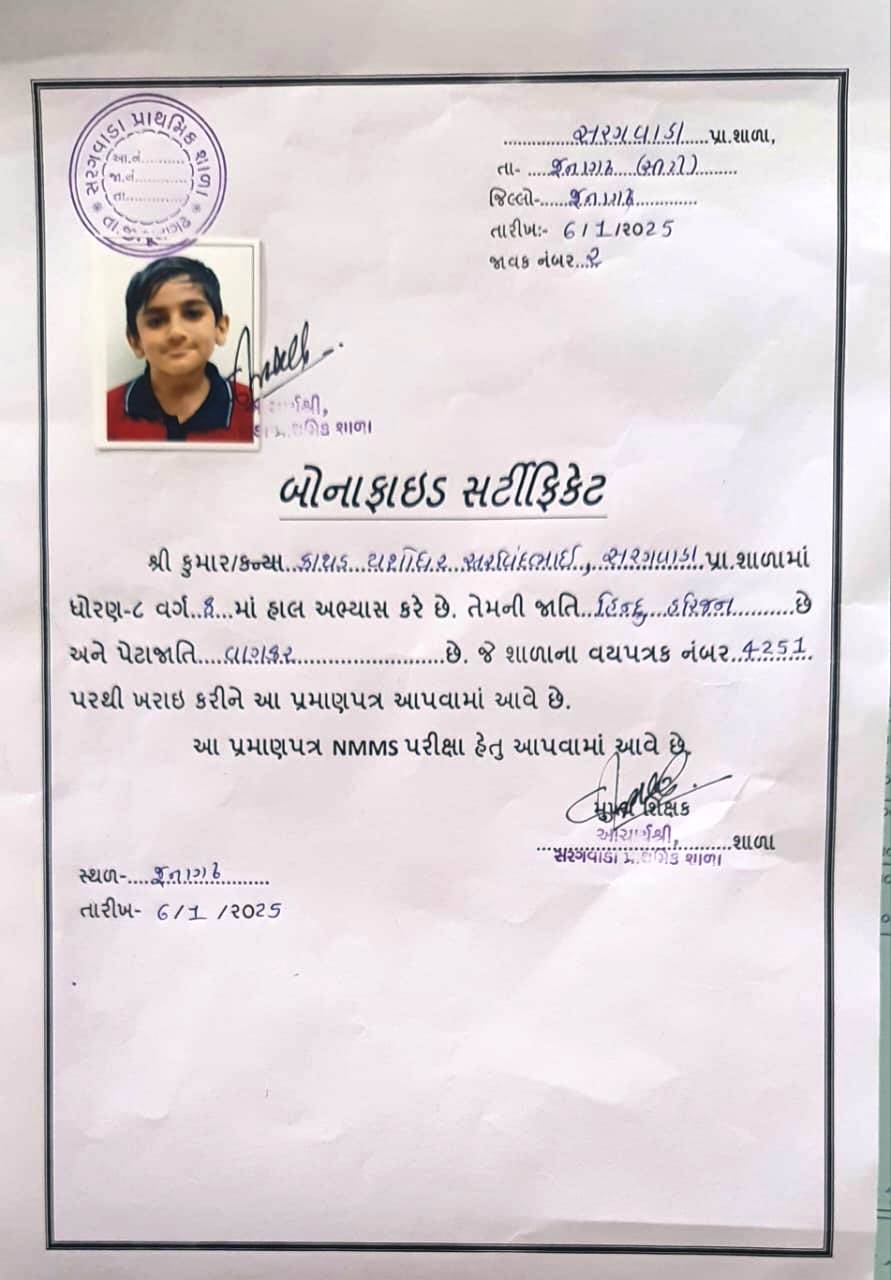 સરગવાડા પ્રાથમિક શાળા
આ.નં...........
જા.નં...........
તા..............
..............સરગવાડા......પ્રા.શાળા,
તા-....જુનાગઢ....(સીટી)........
જિલ્લો-......જુનાગઢ.............
તારીખઃ- 6/1/૨૦25
જાવક નંબર...૨
આચાર્યશ્રી,
શાળા
બોનાફાઇડ સર્ટીફિકેટ
શ્રી કુમાર/કન્યા..કાથડ..યશોધર..અરવિંદભાઈ.,..સરગવાડા.પ્રા.શાળામાં
ધોરણ-૮ વર્ગ..8...માં હાલ અભ્યાસ કરે છે. તેમની જાતિ..હિન્દુ....હરિજન..........છે
અને પેટાજાતિ....વણકર.......................છે. જે શાળાના વયપત્રક નંબર..4251.
પરથી ખરાઇ કરીને આ પ્રમાણપત્ર આપવામાં આવે છે.
આ પ્રમાણપત્ર NMMS પરીક્ષા હેતુ આપવામાં આવે છે.
મુખ્ય શિક્ષક
આચાર્યશ્રી,..........શાળા
સરગવાડા પ્રાથમિક શાળા
સ્થળ-....જુનાગઢ.........
તારીખ- 6/1 /૨૦25